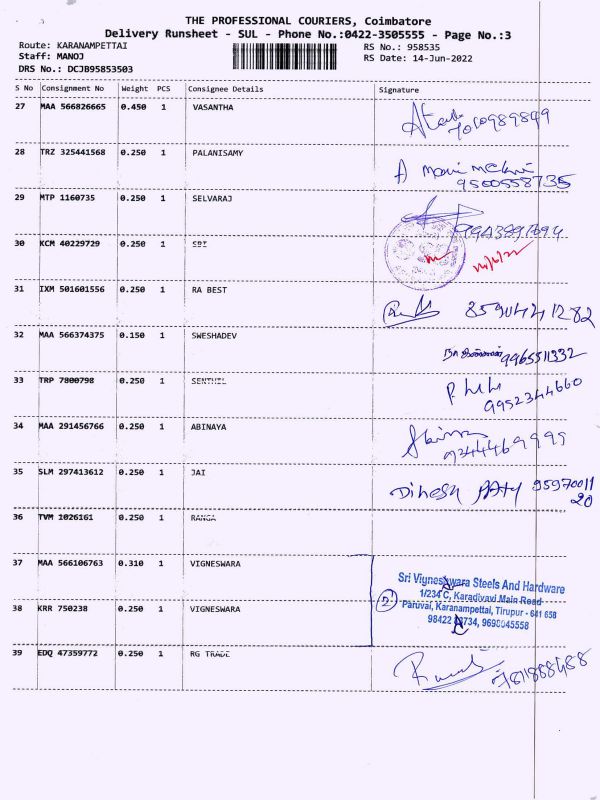 THE PROFESSIONAL COURIERS, Coimbatore
Delivery Runsheet - SUL - Phone No.:0422-3505555 - Page No.:3
Route: KARANAMPETTAI RS No.: 958535
Staff: MANOJ RS Date: 14-Jun-2022
DRS No.: DCJB95853503
S No Consignment No Weight PCS Consignee Details Signature
27 MAA 566826665 0.450 1 VASANTHA
28 TRZ 325441568 0.250 1 PALANISAMY
9500558735
29 MTP 1160735 0.250 1 SELVARAJ
30 KCM 40229729 0.250 1 SBI
31 IXM 501601556 0.250 1 RA BEST
32 MAA 566374375 0.150 1 SWESHADEV
9965511332
33 TRP 7800798 0.250 1 SENTHIL
9952344660
34 MAA 291456766 0.250 1 ABINAYA
9344469999
35 SLM 297413612 0.250 1 JAI
Dinesh
36 TVM 1026161 0.250 1 RANGA
37 MAA 566106763 0.310 1 VIGNESWARA
Sri Vigneshwara Steels And Hardware
1/234 C, Karadivavi Main Road
2 Paruvai, Karanampettai, Tirupur - 641 658
38 KRR 750238 0.250 1 VIGNESWARA
9690045558
39 EDQ 47359772 0.250 1 RG TRADE